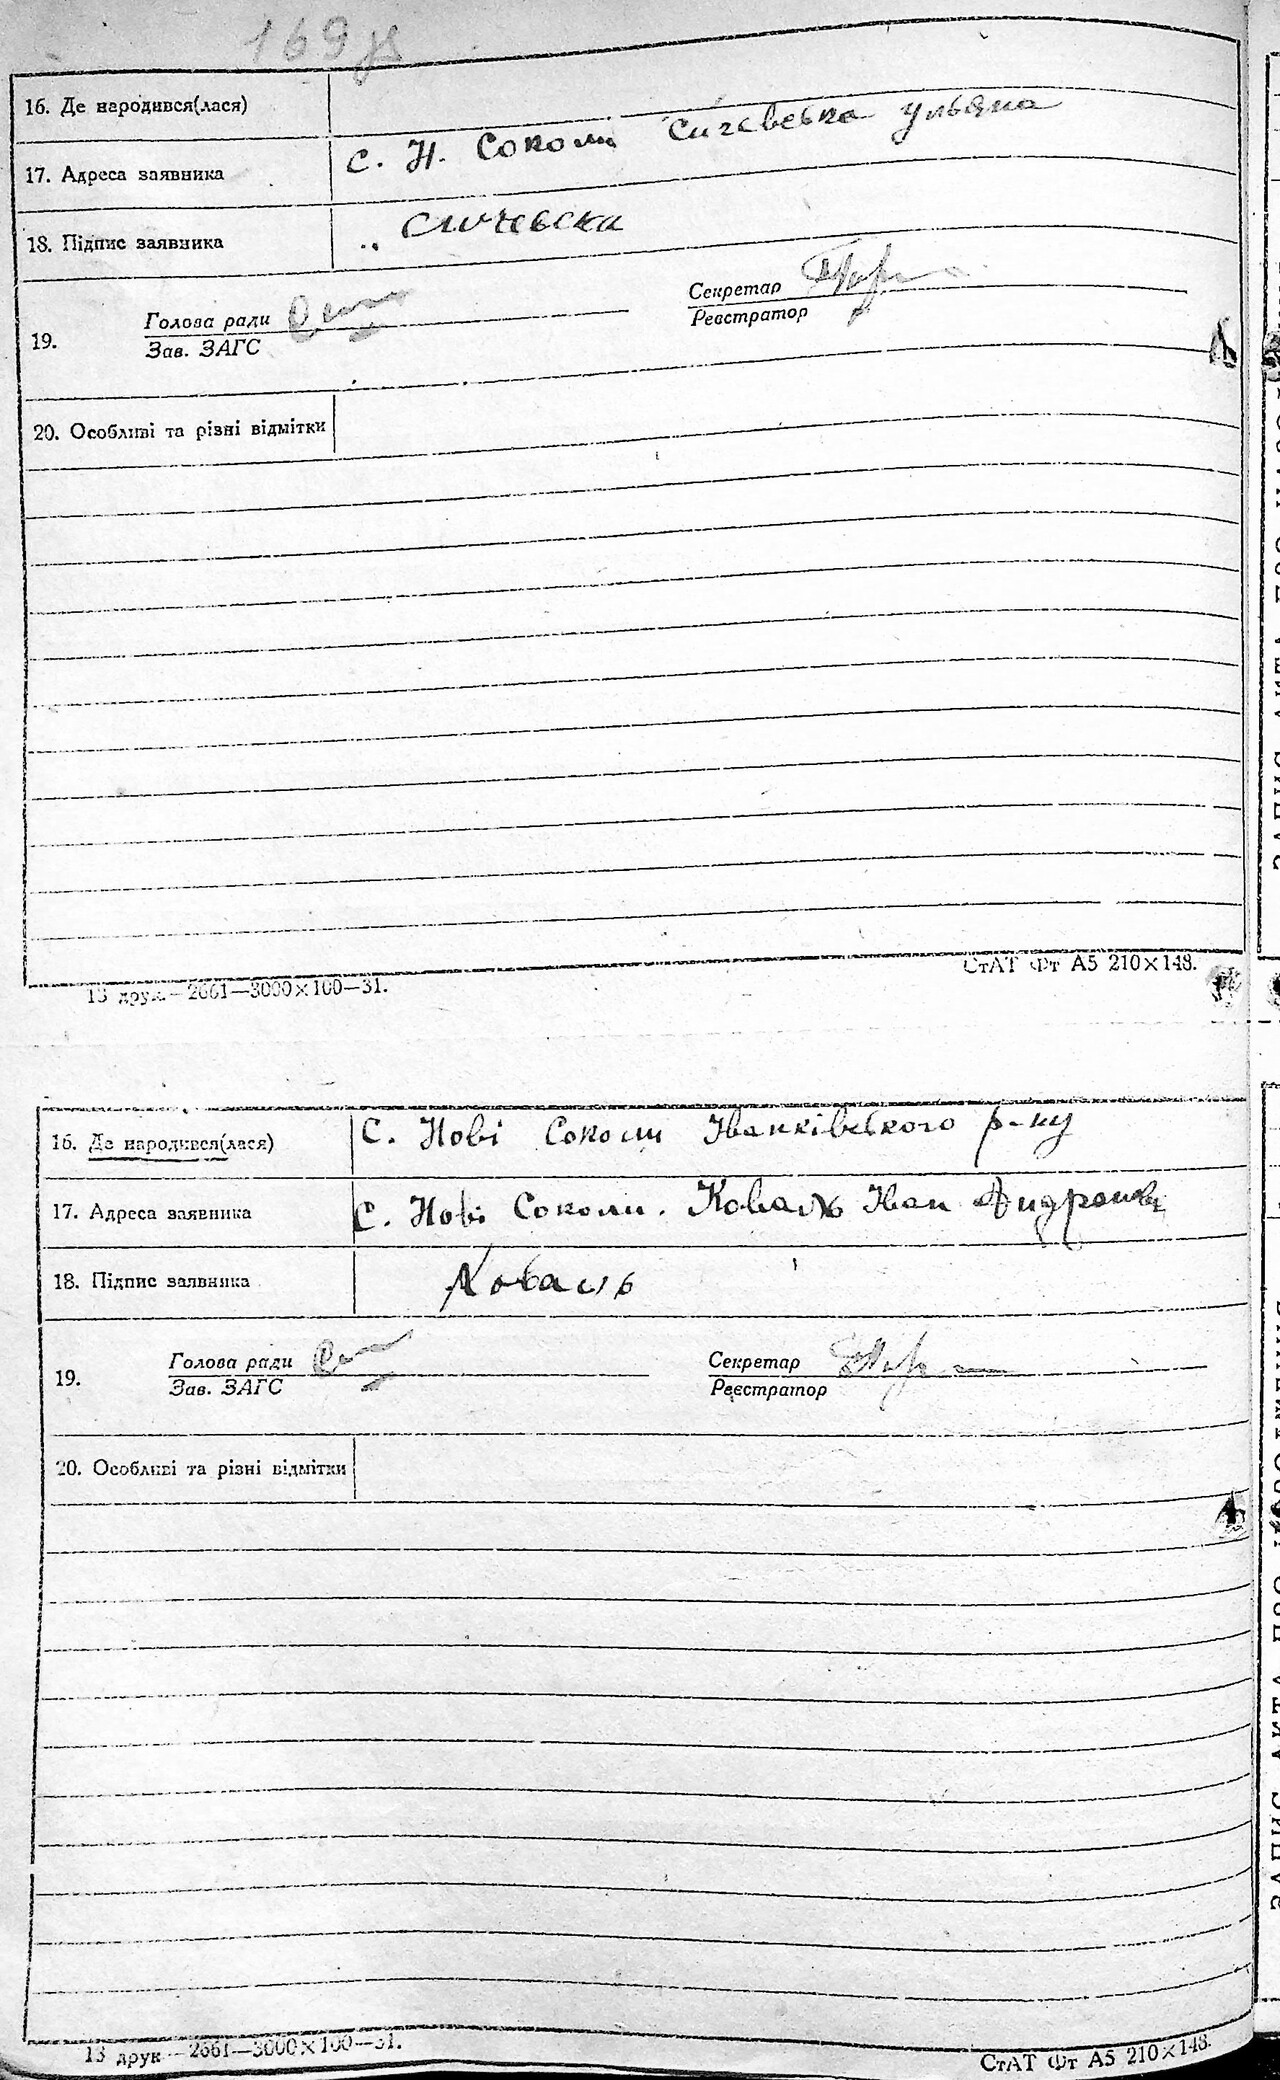 169
16. Де народився(лася)
17. Адреса заявника С. Н. Соколи Сичевська Ульяна
18. Підпис заявника Сичевска
19. Голова ради Секретар
Зав. ЗАГС Реєстратор
20. Особливі та різні відмітки
13 друк.—2661—3000×100—31. СтАТ Фт А5 210×148.
16. Де народився(лася) С. Нові Соколи Іванківського р-ну
17. Адреса заявника С. Нові Соколи. Коваль Іван
18. Підпис заявника Коваль
19. Голова ради Секретар
Зав. ЗАГС Реєстратор
20. Особливі та різні відмітки
13 друк—2661—3000×100—31. СтАТ Фт А5 210×148.